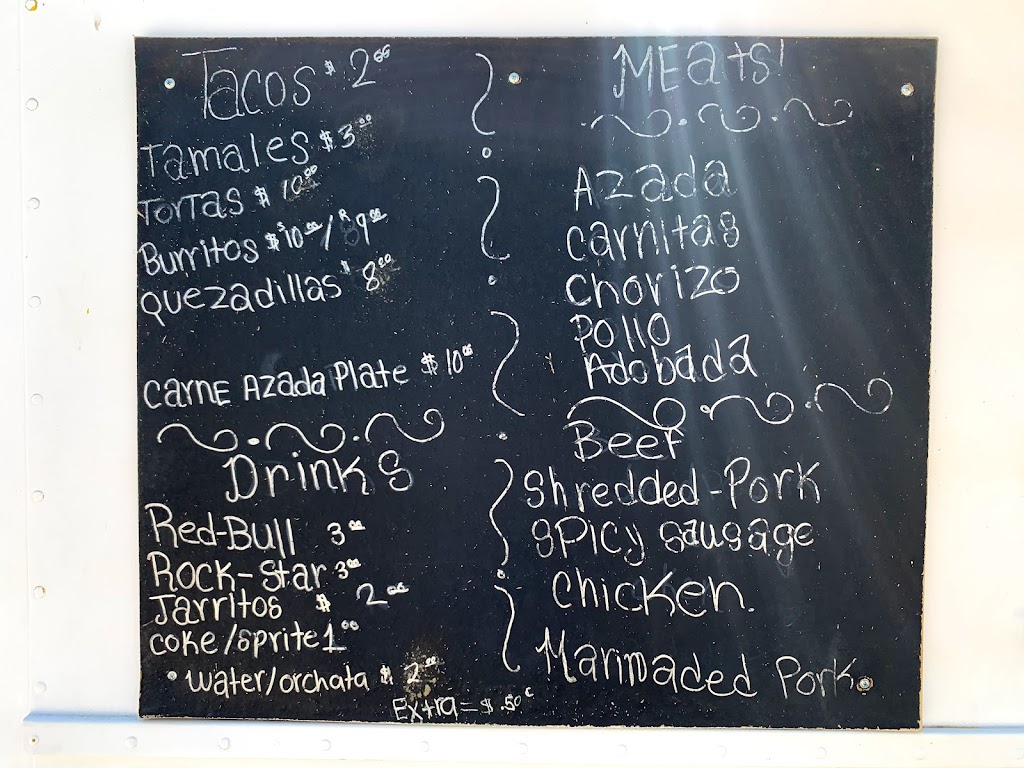 Tacos $2.00
Tamales $3.00
TorTas $10.00
Burritos $10.00/R 9.00
quezadillas $8.00
carnE AzadA Plate $10.00
Drinks
Red-Bull 3.00
Rock-star 3.00
Jarritos $ 2.00
coke/sprite 1.00
• water/orchata $ 2.00
Extra = $.50c
MEats!
Azada
carnitas
chorizo
Pollo
Adobada
Beef
Shredded-Pork
sPicy sausage
chicken.
Marinaded Pork.